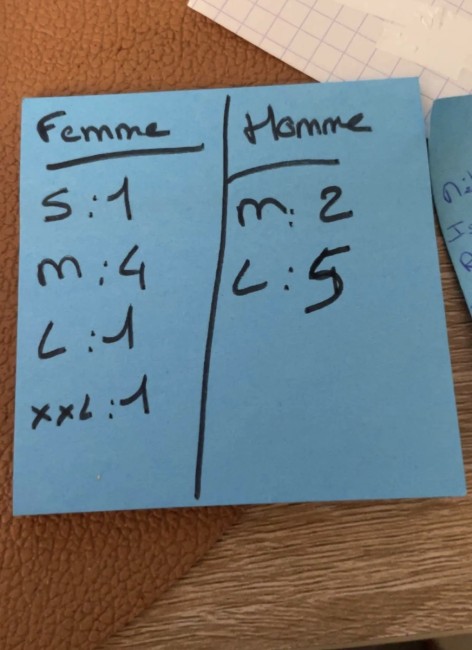 Femme
S : 1
M : 4
L : 1
XXL : 1
Homme
M : 2
L : 5